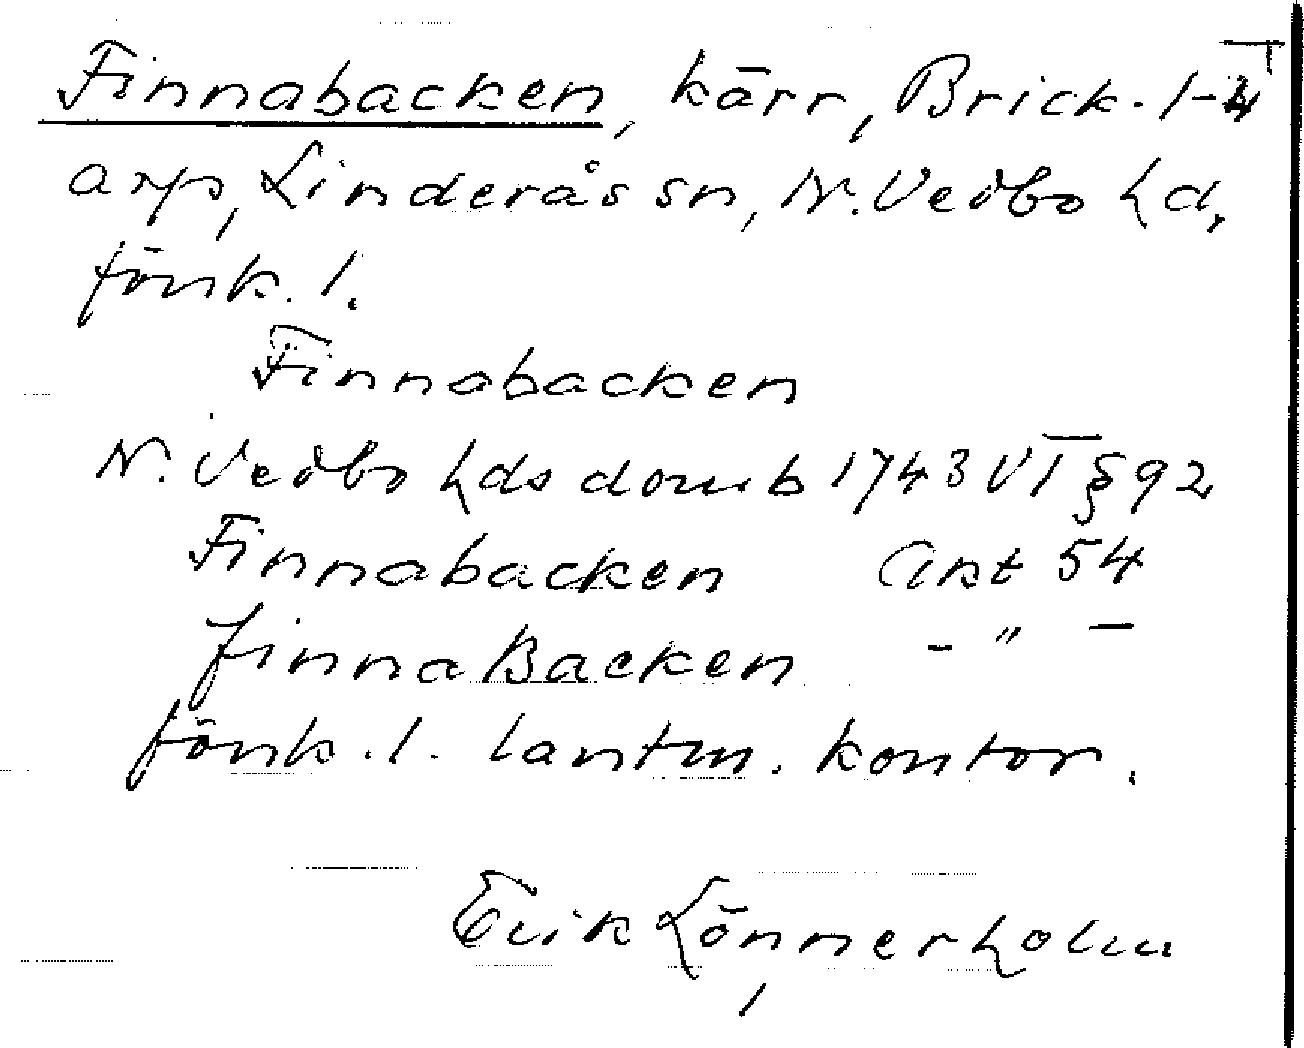 Finnabacken, kärr, Brick. 1-4
arp, Linderås sn, N. Vedbo hd,
Jönk. l.
Finnabacken
N. Vedbo hds domb 1743 VI § 92
Finnabacken Akt 54
finna Backen - " -
Jönk. l. lantm. kontor.
Erik Lönnerholm